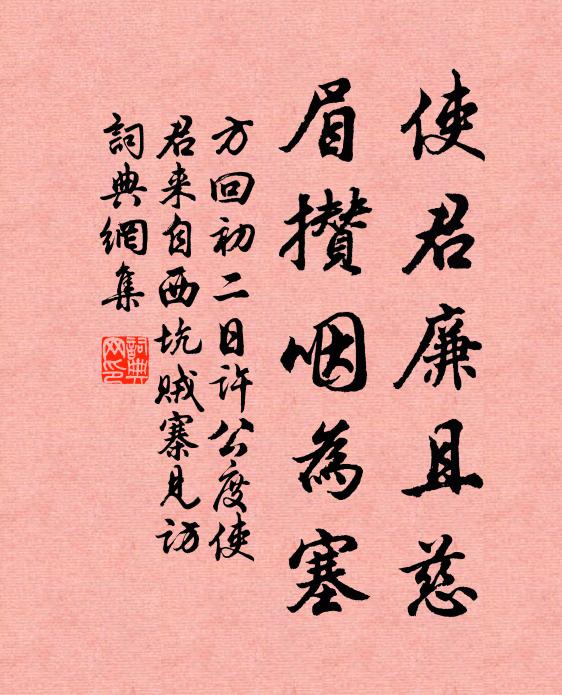 使君廉且慈
眉攢咽為塞
方回初二日許公度使
君来自西坑賊寨見訪
詞典網集
詞典网印